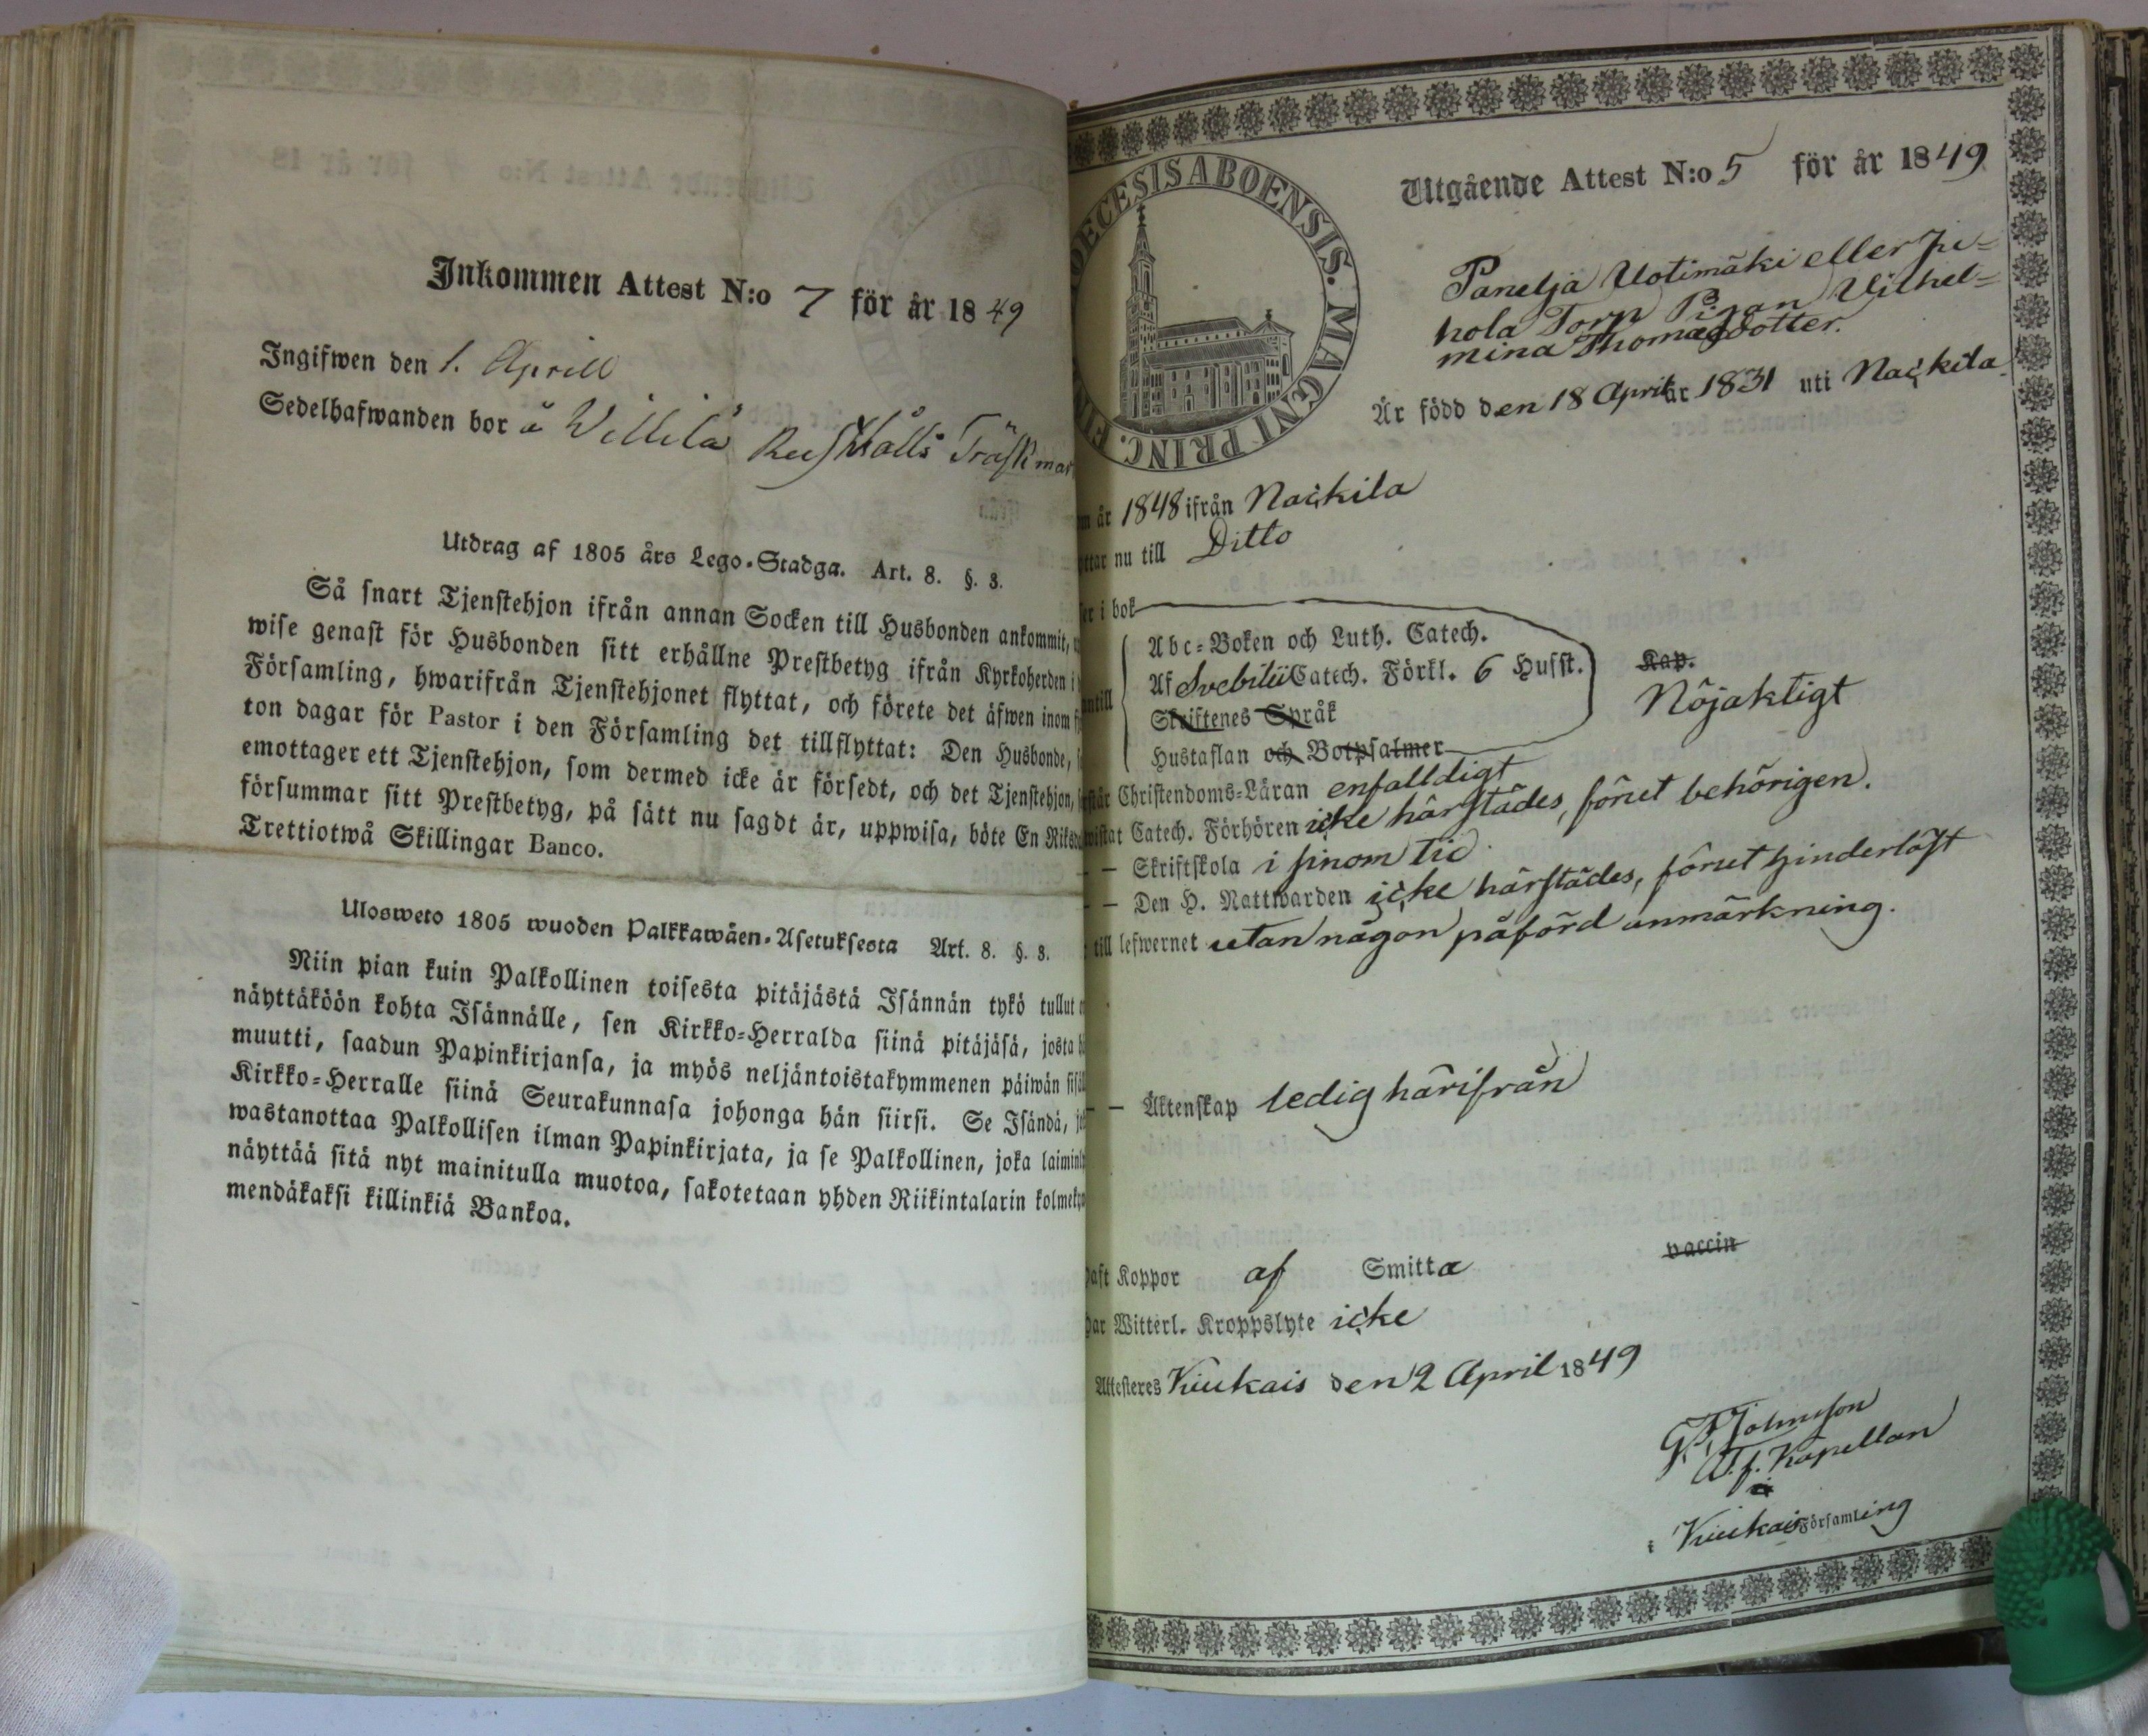 Inkommen Attest N:o 7 för år 1849
Ingifwen den 1. Aprill
Sedelhafwanden bor å Willilä Rusthålls
Utdrag af 1805 års Lego-Stadga. Art. 8. §. 3.
Så snart Tjenstehjon ifrån annan Socken till Husbonden ankommit,
wise genast för Husbonden sitt erhållne Prestbetyg ifrån Kyrkoherden i
Församling, hwarifrån Tjenstehjonet flyttat, och förete det äfwen inom
ton dagar för Pastor i den Församling det tillflyttat: Den Husbonde,
emottager ett Tjenstehjon, som dermed icke är försedt, och det Tjenstehjon,
försummar sitt Prestbetyg, på sätt nu sagdt är, uppwisa, böte En Riksd
Trettiotwå Skillingar Banco.
Ulosweto 1805 wuoden Palkkawäen-Asetuksesta Art. 8. §. 3.
Niin pian kuin Palkollinen toisesta pitäjästä Isännän tykö tullut
näyttäköön kohta Isännälle, sen Kirkko-Herralda siinä pitäjäsä, josta
muutti, saadun Papinkirjansa, ja myös neljäntoistakymmenen päiwän sisäl
Kirkko-Herralle siinä Seurakunnasa johonga hän siirsi. Se Isändä,
wastanottaa Palkollisen ilman Papinkirjata, ja se Palkollinen, joka laimin
näyttää sitä nyt mainitulla muotoa, sakotetaan yhden Riikintalarin kolmeky
mendäkaksi killinkiä Bankoa.
DECESIS ABOENSIS. MAGNI PRINC. FIN
Utgående Attest N:o 5 för år 1849
Panelja Uotimäki eller Ju=
hola Torp Pigan Vilhel=
mina Thomasdotter.
Är född den 18 April år 1831 uti Nackila
m år 1848 ifrån Nackila
ttar nu till Ditto
er i bok
Abc-Boken och Luth. Catech.
Af Svebilii Catech. Förkl. 6 Husst. Kap.
Skriftenes Språk Nöjaktigt
Hustaflan och Botpsalmer
ntill
står Christendoms-Läran enfalldigt
wistat Catech. Förhören icke härstädes, förut behörigen.
— — Skriftskola i sinom tid.
— — Den H. Nattwarden icke härstädes, förut hinderlöst
till lefwernet utan någon påförd anmärkning.
— — Äktenskap ledig härifrån
haft Koppor af Smitta vaccin
har Witterl. Kroppslyte icke
Attesteres Kiukais den 2 April 1849
G. F. Johnsson
V. f. Kapellan
i Kiukais Församling